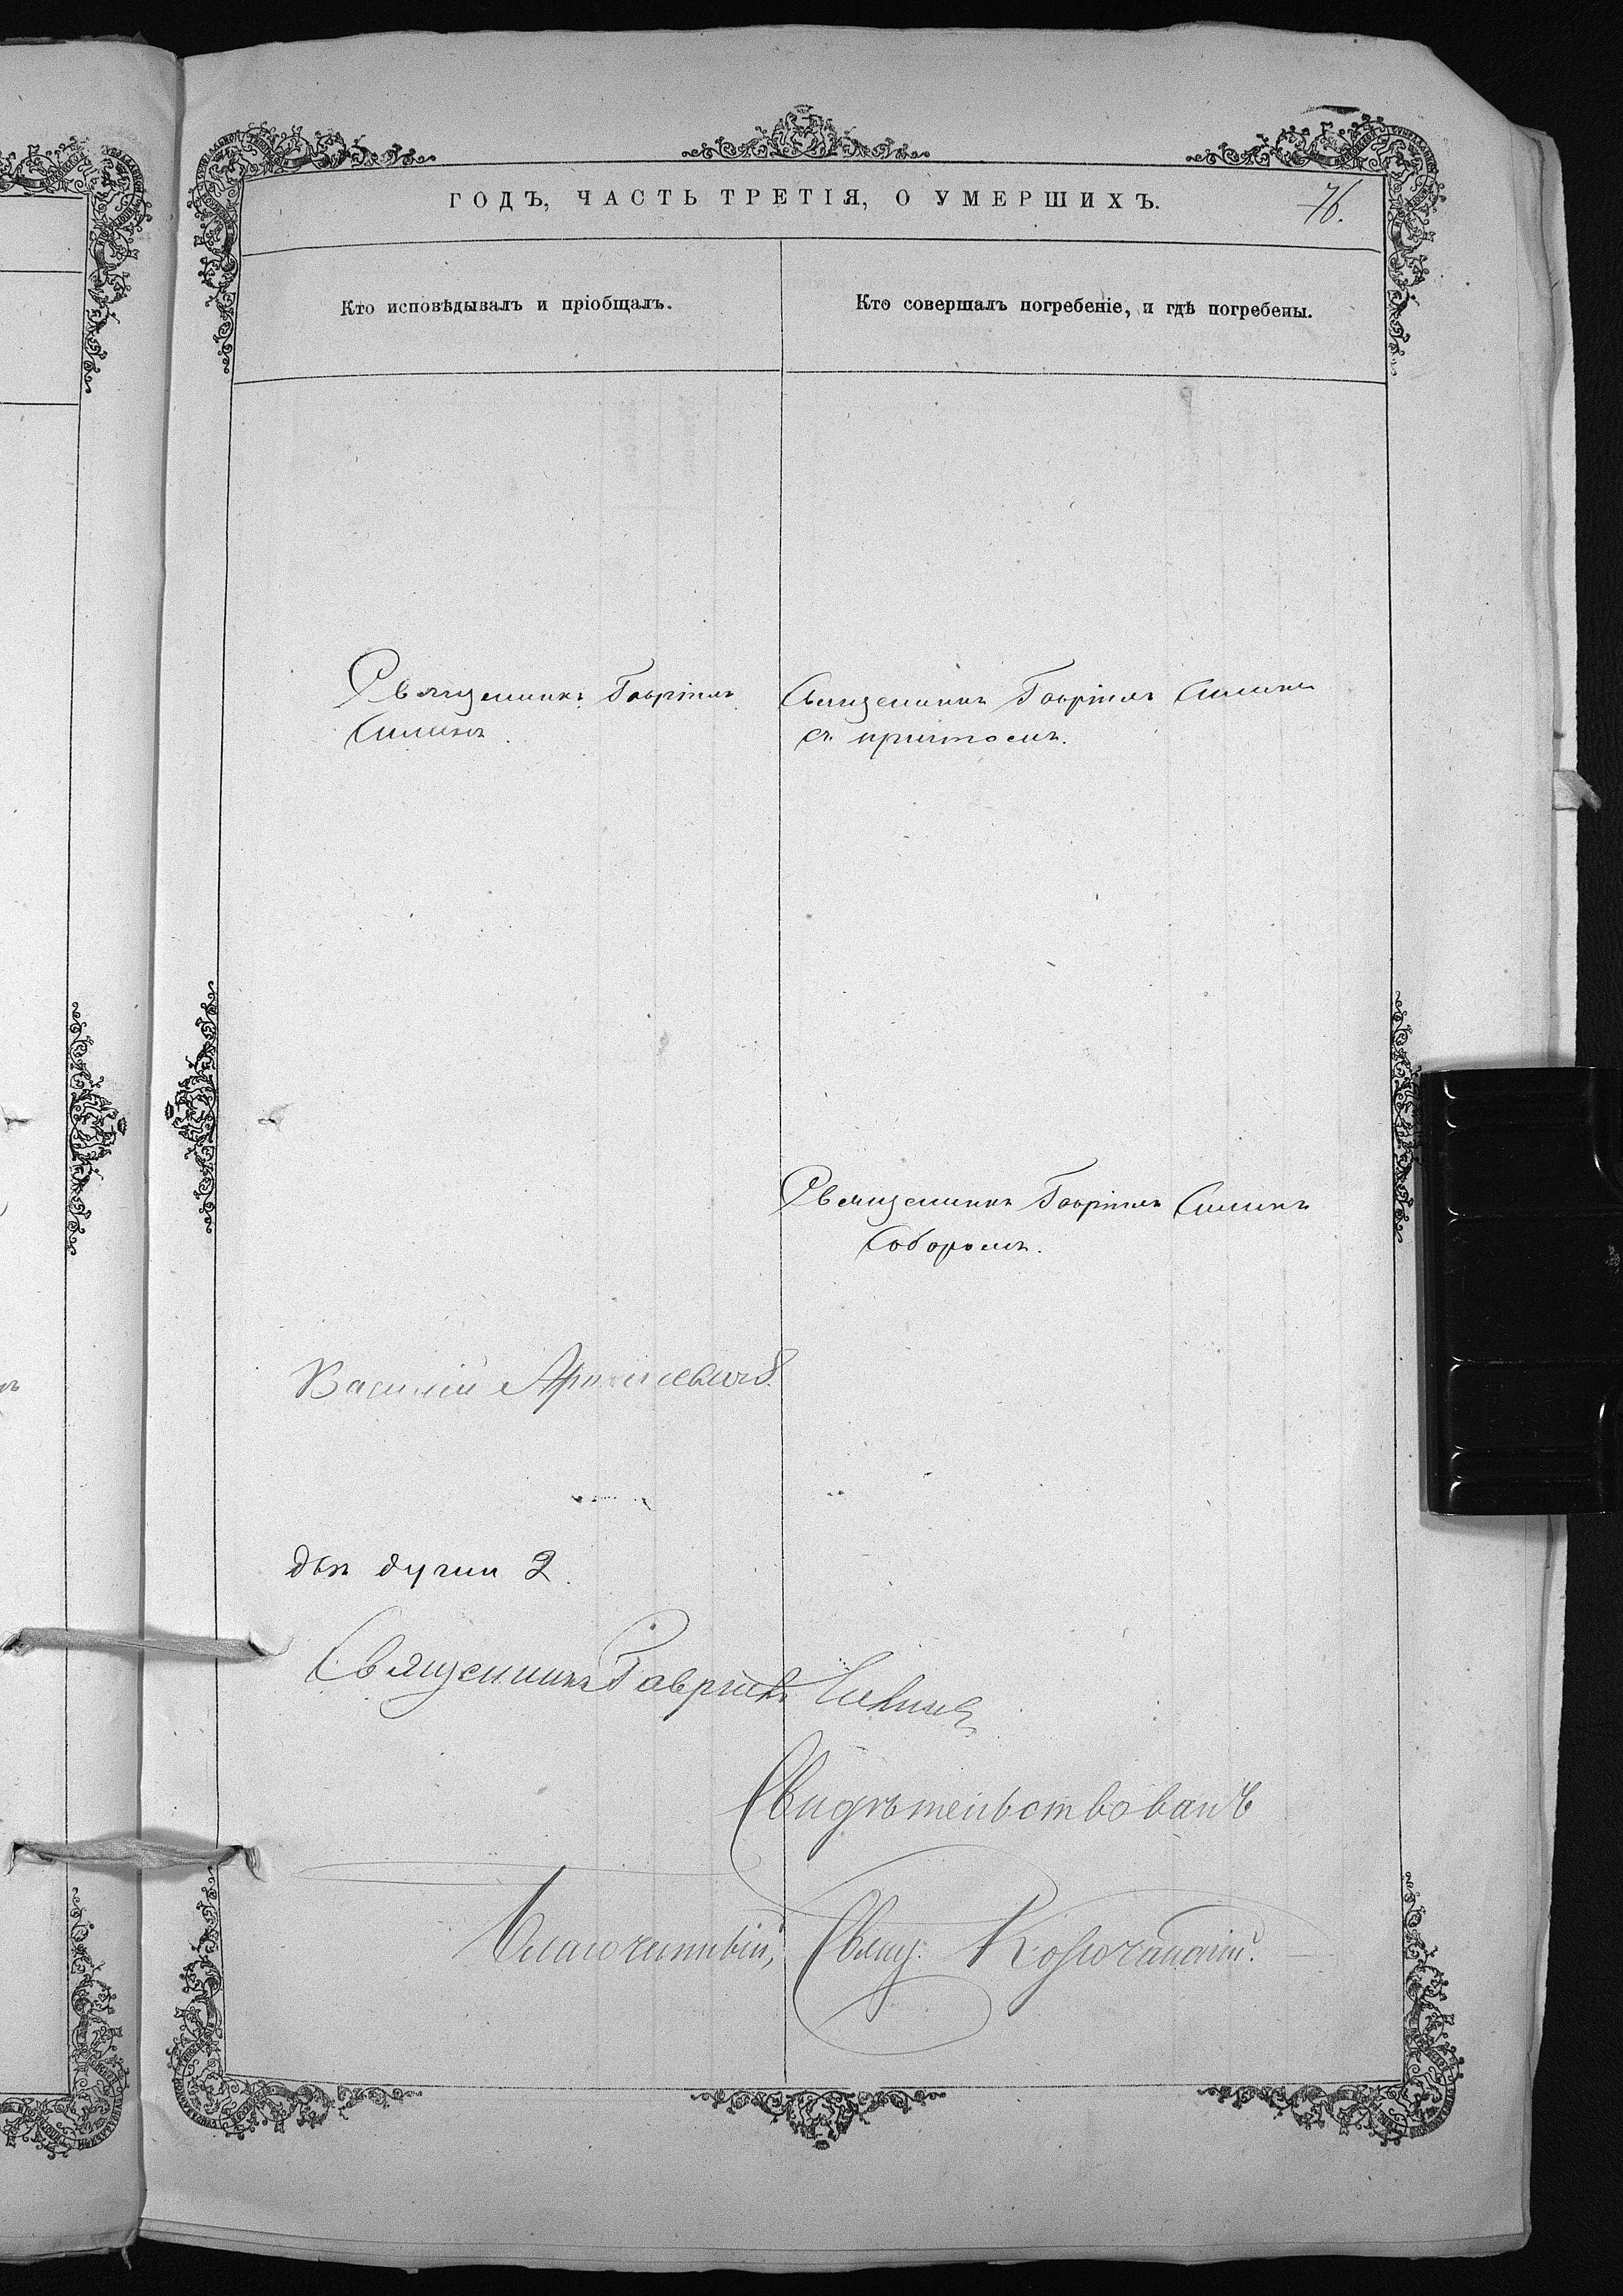 ГОДЪ, ЧАСТЬ ТРЕТІЯ, О УМЕРШИХЪ.
76.
Кто исповѣдывалъ и пріобщалъ.
Кто совершалъ погребеніе, и гдѣ погребены.
Священникъ Гавріилъ
Силинъ
Священникъ Гавріилъ Силинъ
съ причтомъ.
Священникъ Гавріилъ Силинъ
Соборомъ.
Василій
двѣ души 2.
Священникъ Гавріилъ Силинъ
Свидѣтельствовалъ
Благочинный, Свящ.